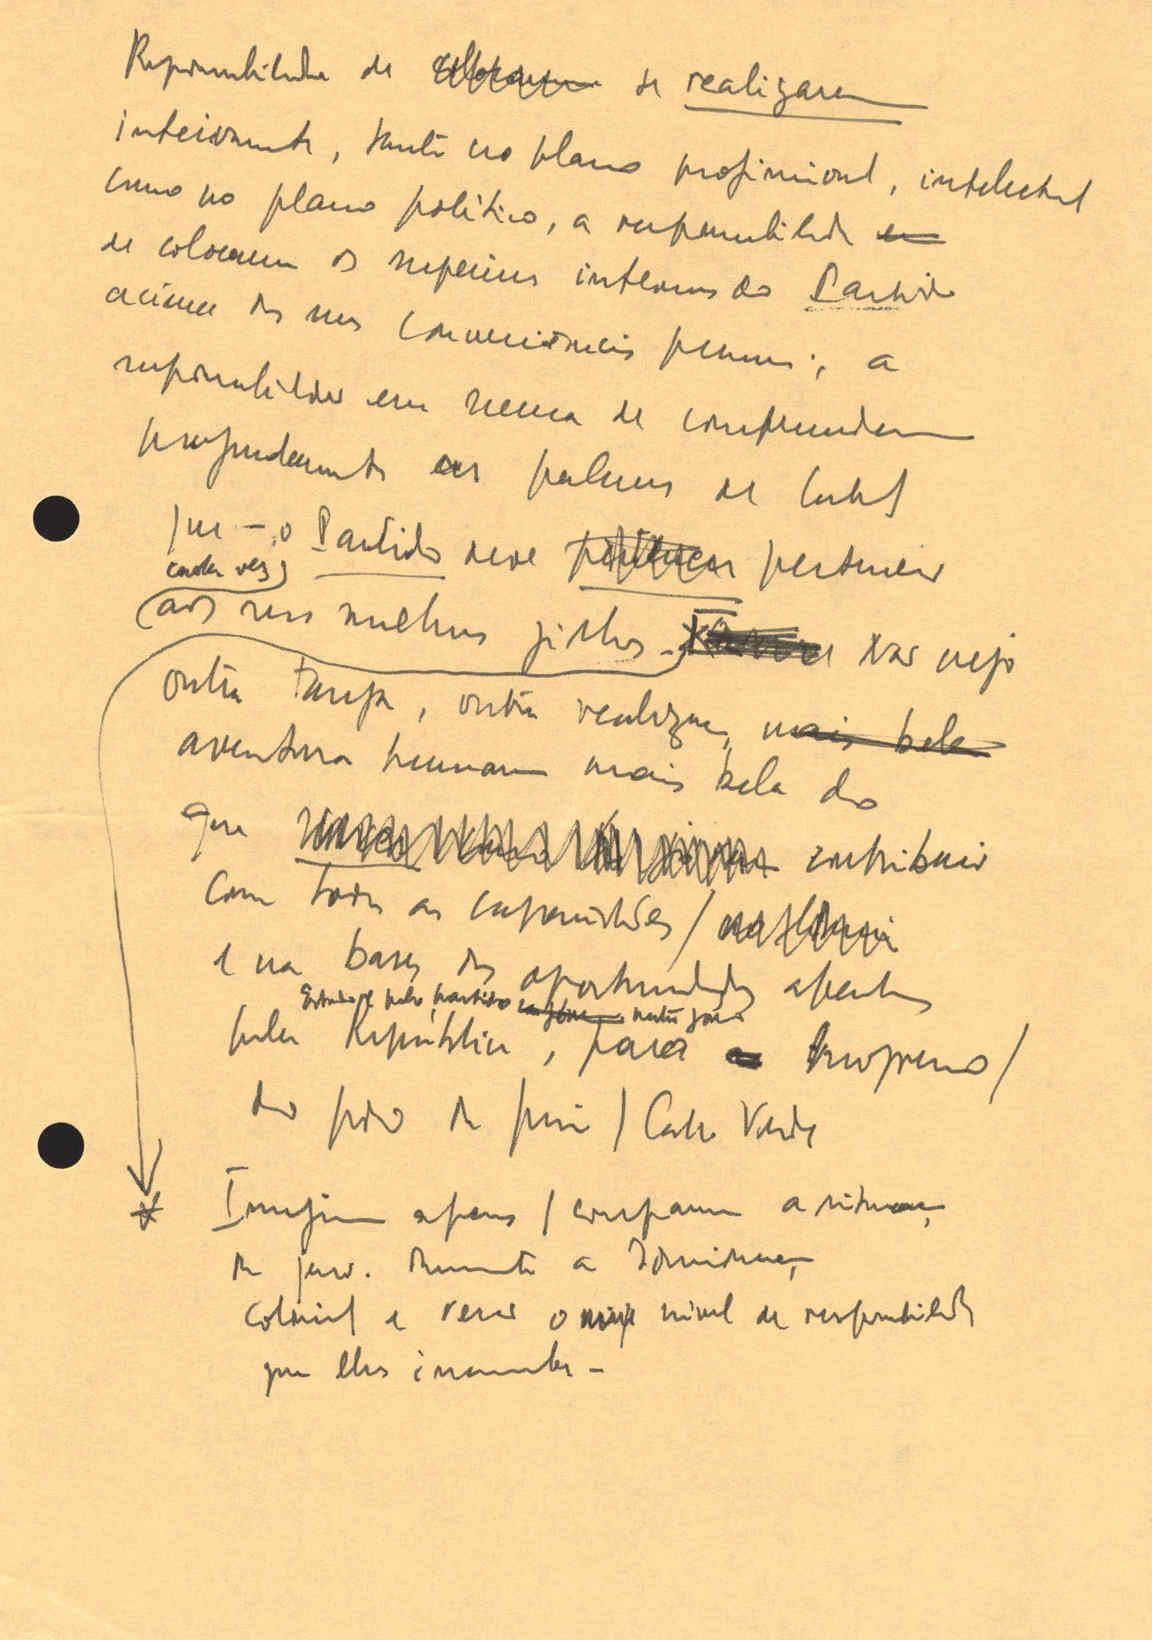 Responsabilidade de se realizarem
inteiramente, tanto no plano profissional, intelectual
como no plano político, a responsabilidade
de colocarem os superiores interesses do Partido
acima das suas conveniências pessoais; a
responsabilidade em suma de compreenderem
profundamente as palavras de Cabral
que - o Partido deve pertencer
cada vez
aos seus melhores filhos - Não vejo
outra tarefa, outra realização,
aventura humana mais bela do
que contribuir
com todas as capacidades /
e na base das oportunidades abertas
Estado e pelo partido neste
pela República, para o Progresso /
do povo da Guiné / Cabo Verde
* Imaginem apenas / comparem a situação
da juv. durante a dominação
colonial e vereis o nível de responsabilidade
que lhes incumbe -